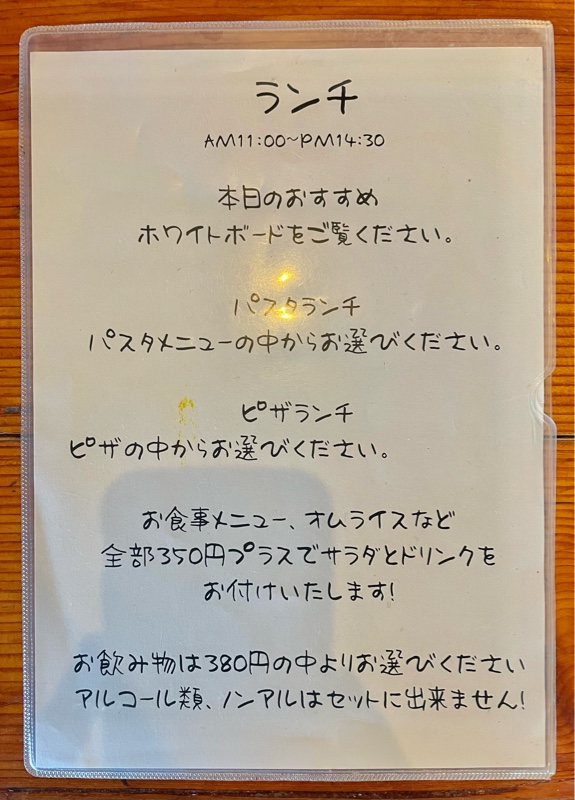 ランチ
AM11:00~PM14:30
本日のおすすめ
ホワイトボードをご覧ください。
パスタランチ
パスタメニューの中からお選びください。
ピザランチ
ピザの中からお選びください。
お食事メニュー、オムライスなど
全部350円プラスでサラダとドリンクを
お付けいたします!
お飲み物は380円の中よりお選びください
アルコール類、ノンアルはセットに出来ません!